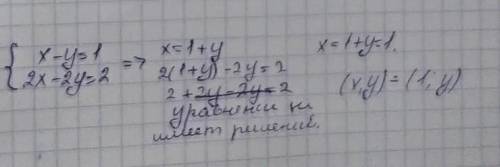 { x-y=1
2x-2y=2 =>
x=1+y
2(1+y)-2y=2
2+2y-2y=2
уравнении не
имеет решений.
x=1+y=1.
(x,y)=(1;y)